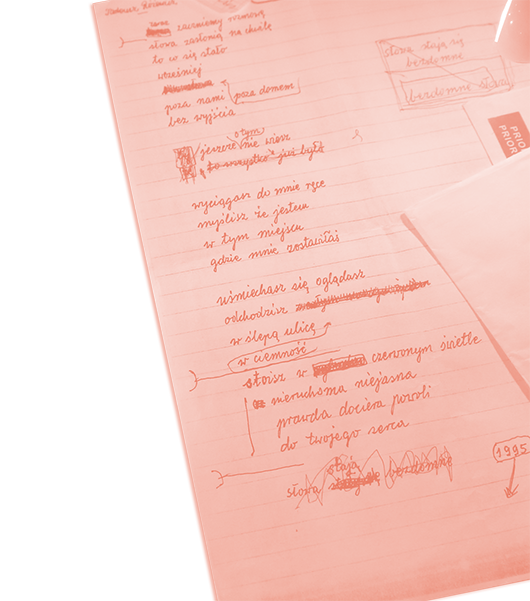 Tadeusz Różewicz
zaczniemy rozmowę
słowa zasłonią na chwilę
to co się stało
wcześniej
poza nami
poza domem
bez wyjścia
o tym
jeszcze nie wiesz
to wszystko już było
wyciągasz do mnie ręce
myślisz że jestem
w tym miejscu
gdzie mnie zostawiłaś
uśmiechasz się oglądasz
odchodzisz
w ślepą ulicę
w ciemność
stoisz w czerwonym świetle
nieruchoma niejasna
prawda dociera powoli
do twojego serca
stają
słowa się bezdomne
słowa stają się
bezdomne
bezdomne słowa
1995
PRIO
PRIOR